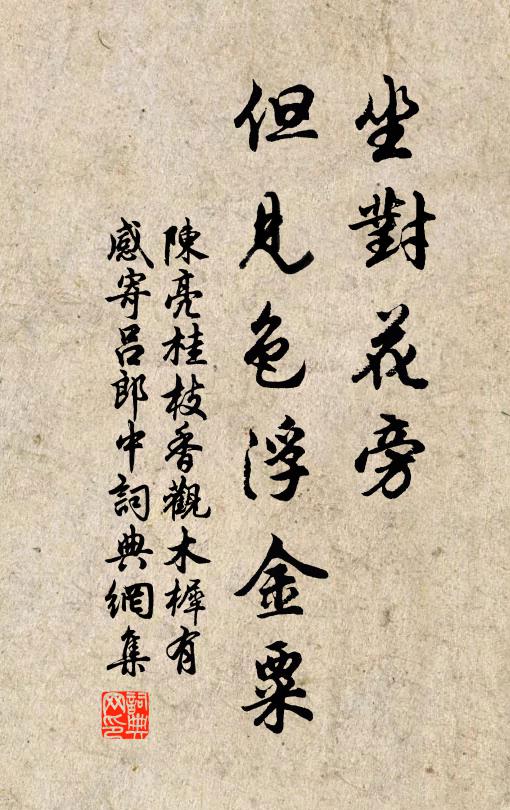 坐對花旁
但見色浮金粟
陳亮桂枝香觀木樨有
感寄呂郎中詞典網集
詞典
网印